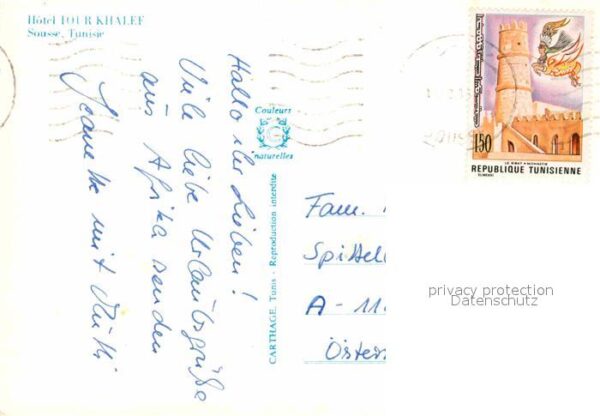 Hôtel TOUR KHALEF
Sousse, Tunisie
Hallo ihr Lieben!
Viele liebe Urlaubsgrüße
aus Afrika senden
mit
Couleurs
naturelles
CARTHAGE, Tunis - Reproduction interdite
150
LE RIBAT • MONASTIR
REPUBLIQUE TUNISIENNE
Fam.
Spittel
A - 11
Öster
privacy protection
Datenschutz